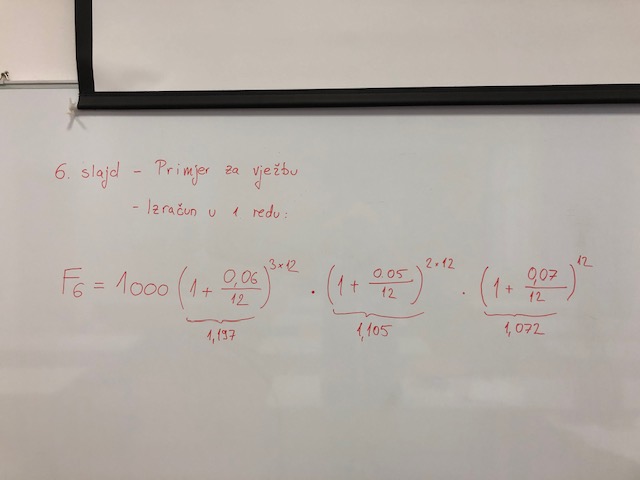 6. slajd - Primjer za vježbu
- Izračun u 1 redu:
F₆ = 1000 (1 + 0,06/12)^3×12 · (1 + 0.05/12)^2×12 · (1 + 0,07/12)^12
1,197 1,105 1,072